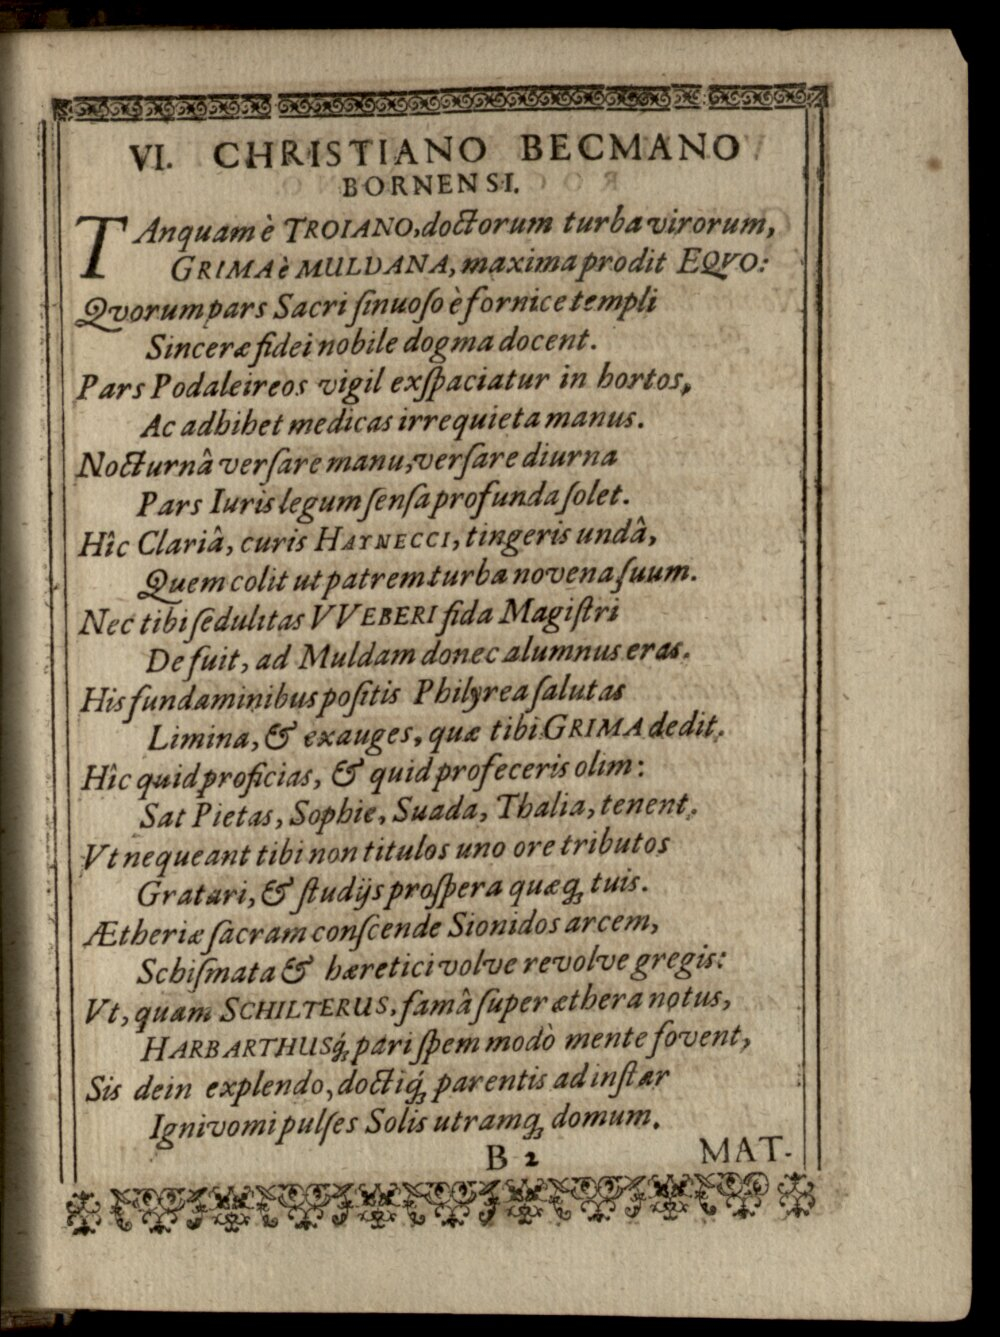 VI. CHRISTIANO BECMANO
BORNENSI.
TAnquam è TROIANO, doctorum turba virorum,
GRIMA è MULDANA, maxima prodit EQVO:
Qvorum pars Sacri ſinuoſo è fornice templi
Sinceræ fidei nobile dogma docent.
Pars Podaleireos vigil exſpaciatur in hortos,
Ac adhibet medicas irrequieta manus.
Nocturnâ verſare manu, verſare diurna
Pars Iuris legum ſenſa profunda ſolet.
Hîc Clariâ, curis HAYNECCI, tingeris undâ,
Quem colit ut patrem turba novena ſuum.
Nec tibi ſedulitas VVEBERI fida Magiſtri
Defuit, ad Muldam donec alumnus eras.
His fundaminibus poſitis Philyrea ſalutas
Limina, & exauges, quæ tibi GRIMA dedit.
Hîc quid proficias, & quid profeceris olim:
Sat Pietas, Sophie, Suada, Thalia, tenent.
Vt nequeant tibi non titulos uno ore tributos
Gratari, & ſtudijs proſpera quæq́; tuis.
Ætheriæ ſacram conſcende Sionidos arcem,
Schiſmata & hæretici volve revolve gregis:
Vt, quam SCHILTERUS, famâ ſuper æthera notus,
HARBARTHUSq́; pari ſpem modò mente fovent,
Sis dein explendo, doctiq́; parentis ad inſtar
Ignivomi pulſes Solis utramq́; domum.
B 2 MAT-